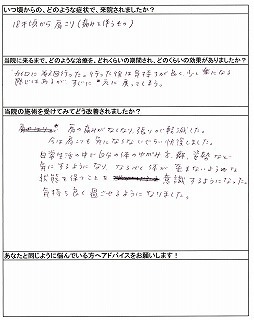 いつ頃からの、どのような症状で、来院されましたか?
18才頃から肩こり(痛みを伴うもの)
当院に来るまで、どのような治療を、どれくらいの期間され、どのくらいの効果がありましたか?
行った後は気持ちが良く、少し楽になる
感じはあるが、すぐに元に戻ってしまう。
当院の施術を受けてみてどう改善されましたか?
肩の痛みがなくなり、張りが軽減した。
今は肩こりも気にならないぐらい快復しました。
日常生活の中で自分の体のゆがみや、癖、姿勢など
気にするようになり、なるべく体が歪まないような
状態を保つことを意識するようになった。
気持ち良く過ごせるようになりました。
あなたと同じように悩んでいる方へアドバイスをお願いします!